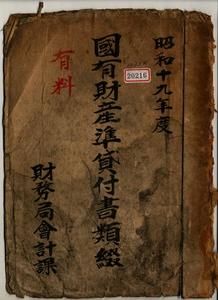 昭和十九年度
國有財産準貸付書類綴
20216
有料
財務局會計課